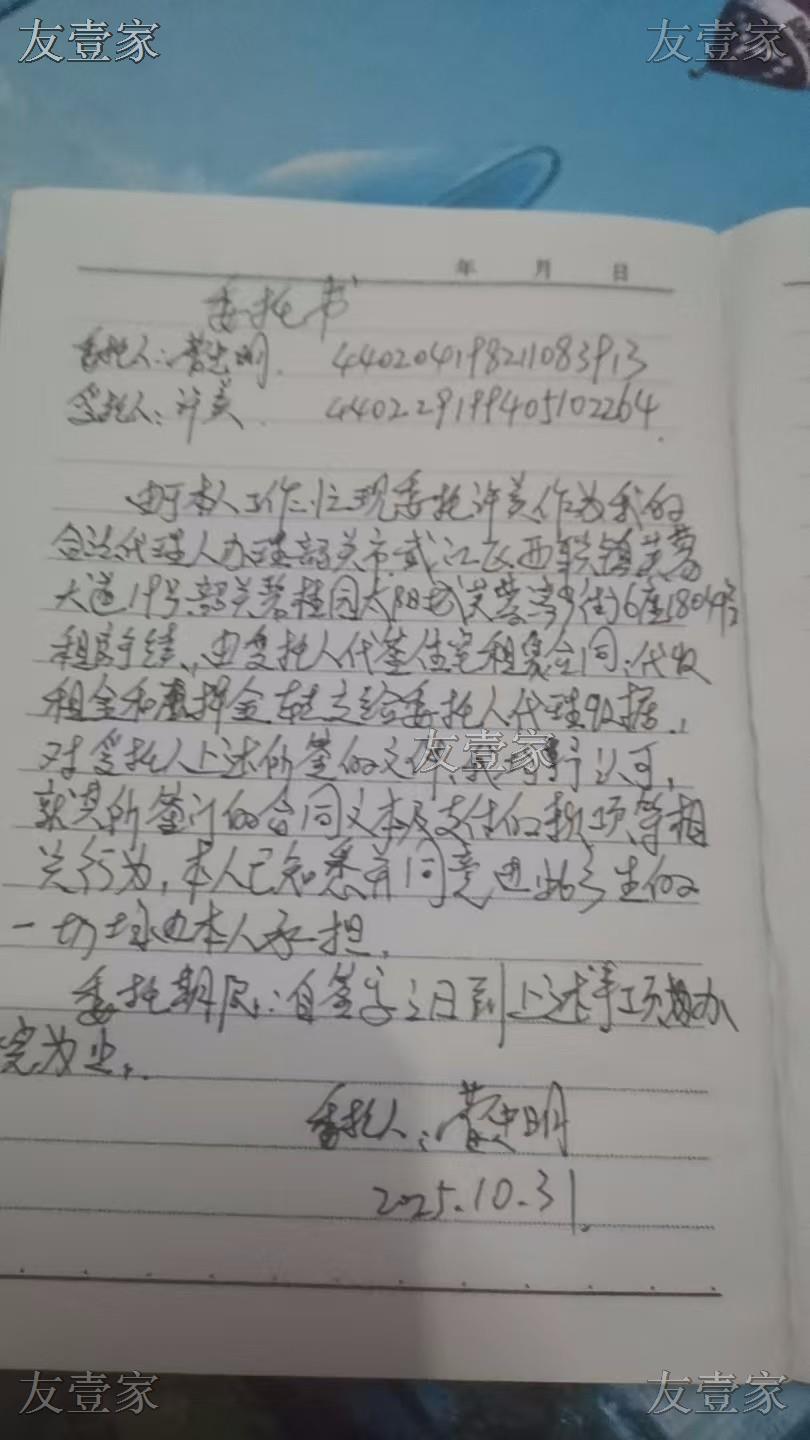 友壹家 友壹家
年 月 日
委托书
委托人：黄忠明. 440204198211083913
受托人：许美. 440229199405102264.
由于本人工作忙现委托许美作为我的
合法代理人办理韶关市武江区西联镇芙蓉
大道19号韶关碧桂园太阳城芙蓉湾6座1804房
租房手续、由受托人代签住宅租赁合同、代收
租金和押金转交给委托人代理收据.
对受托人上述所签的文件我均予认可,
友壹家
就其所签订的合同文本及支付的款项等相
关行为,本人已知悉并同意由此产生的
一切均由本人承担.
委托期限：自签字之日到上述事项办
完为止.
委托人：黄忠明
2025.10.31.
友壹家 友壹家